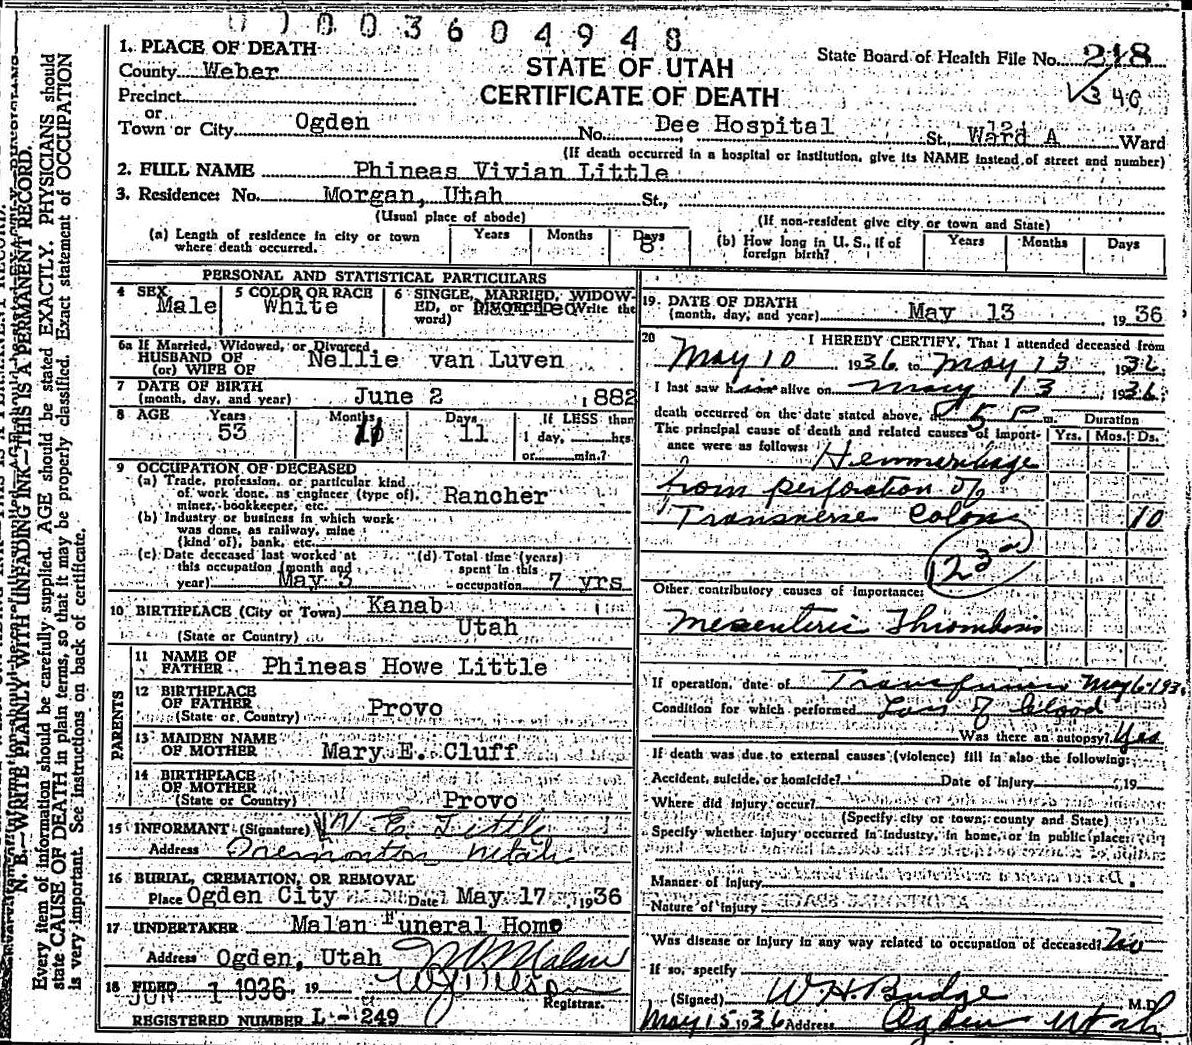 0 1 0 0 3 6 0 4 9 4 8
1. PLACE OF DEATH
County Weber
Precinct
or
Town or City Ogden No. Dee Hospital St., Ward A Ward
STATE OF UTAH
CERTIFICATE OF DEATH
State Board of Health File No. 218
(If death occurred in a hospital or institution, give its NAME instead of street and number)
2. FULL NAME Phineas Vivian Little
3. Residence: No. Morgan, Utah St.,
(Usual place of abode) (If non-resident give city or town and State)
(a) Length of residence in city or town where death occurred. Years Months Days 8
(b) How long in U. S., if of foreign birth? Years Months Days
PERSONAL AND STATISTICAL PARTICULARS
4 SEX Male
5 COLOR OR RACE White
6 SINGLE, MARRIED, WIDOWED, or DIVORCED (Write the word)
6a If Married, Widowed, or Divorced
HUSBAND OF Nellie van Luven
(or) WIFE OF
7 DATE OF BIRTH
(month, day, and year) June 2 1882
8 AGE Years 53 Months 11 Days 11 If LESS than
1 day, hrs.
or min.?
9 OCCUPATION OF DECEASED
(a) Trade, profession, or particular kind
of work done, as engineer (type of), Rancher
miner, bookkeeper, etc.
(b) Industry or business in which work
was done, as railway, mine
(kind of), bank, etc.
(c) Date deceased last worked at
this occupation (month and
year) May 3
(d) Total time (years)
spent in this
occupation 7 yrs
10 BIRTHPLACE (City or Town) Kanab
(State or Country) Utah
PARENTS
11 NAME OF
FATHER Phineas Howe Little
12 BIRTHPLACE
OF FATHER Provo
(State or Country)
13 MAIDEN NAME
OF MOTHER Mary E. Cluff
14 BIRTHPLACE
OF MOTHER
(State or Country) Provo
15 INFORMANT (Signature) W E Little
Address Tremonton Utah
16 BURIAL, CREMATION, OR REMOVAL
Place Ogden City Date May 17 1936
17 UNDERTAKER Malan Funeral Home
Address Ogden, Utah
18 FILED JUN 1 1936 19
Registrar.
REGISTERED NUMBER L - 249
19. DATE OF DEATH
(month, day, and year) May 13 19 36
20 I HEREBY CERTIFY, That I attended deceased from
May 10 1936 to May 13 1936
I last saw him alive on May 13 1936
death occurred on the date stated above, at 5 P m.
The principal cause of death and related causes of importance were as follows:
Duration
Yrs. Mos. Ds.
Hemmorhage
from perforation of
Transverse Colon 10
123
Other contributory causes of importance:
Mesenteric Thrombosis
If operation, date of Transfusion May 6-193
Condition for which performed Loss of blood
Was there an autopsy? Yes
If death was due to external causes (violence) fill in also the following:
Accident, suicide, or homicide? Date of Injury , 19
Where did injury occur?
(Specify city or town, county and State)
Specify whether injury occurred in industry, in home, or in public place:
Manner of Injury
Nature of Injury
Was disease or injury in any way related to occupation of deceased? No
If so, specify
(Signed) W H Budge M.D.
May 15 1936 Address Ogden Utah
N. B.—WRITE PLAINLY WITH UNFADING INK—THIS IS A PERMANENT RECORD.
Every item of information should be carefully supplied. AGE should be stated EXACTLY. PHYSICIANS should
state CAUSE OF DEATH in plain terms, so that it may be properly classified. Exact statement of OCCUPATION
is very important. See instructions on back of certificate.